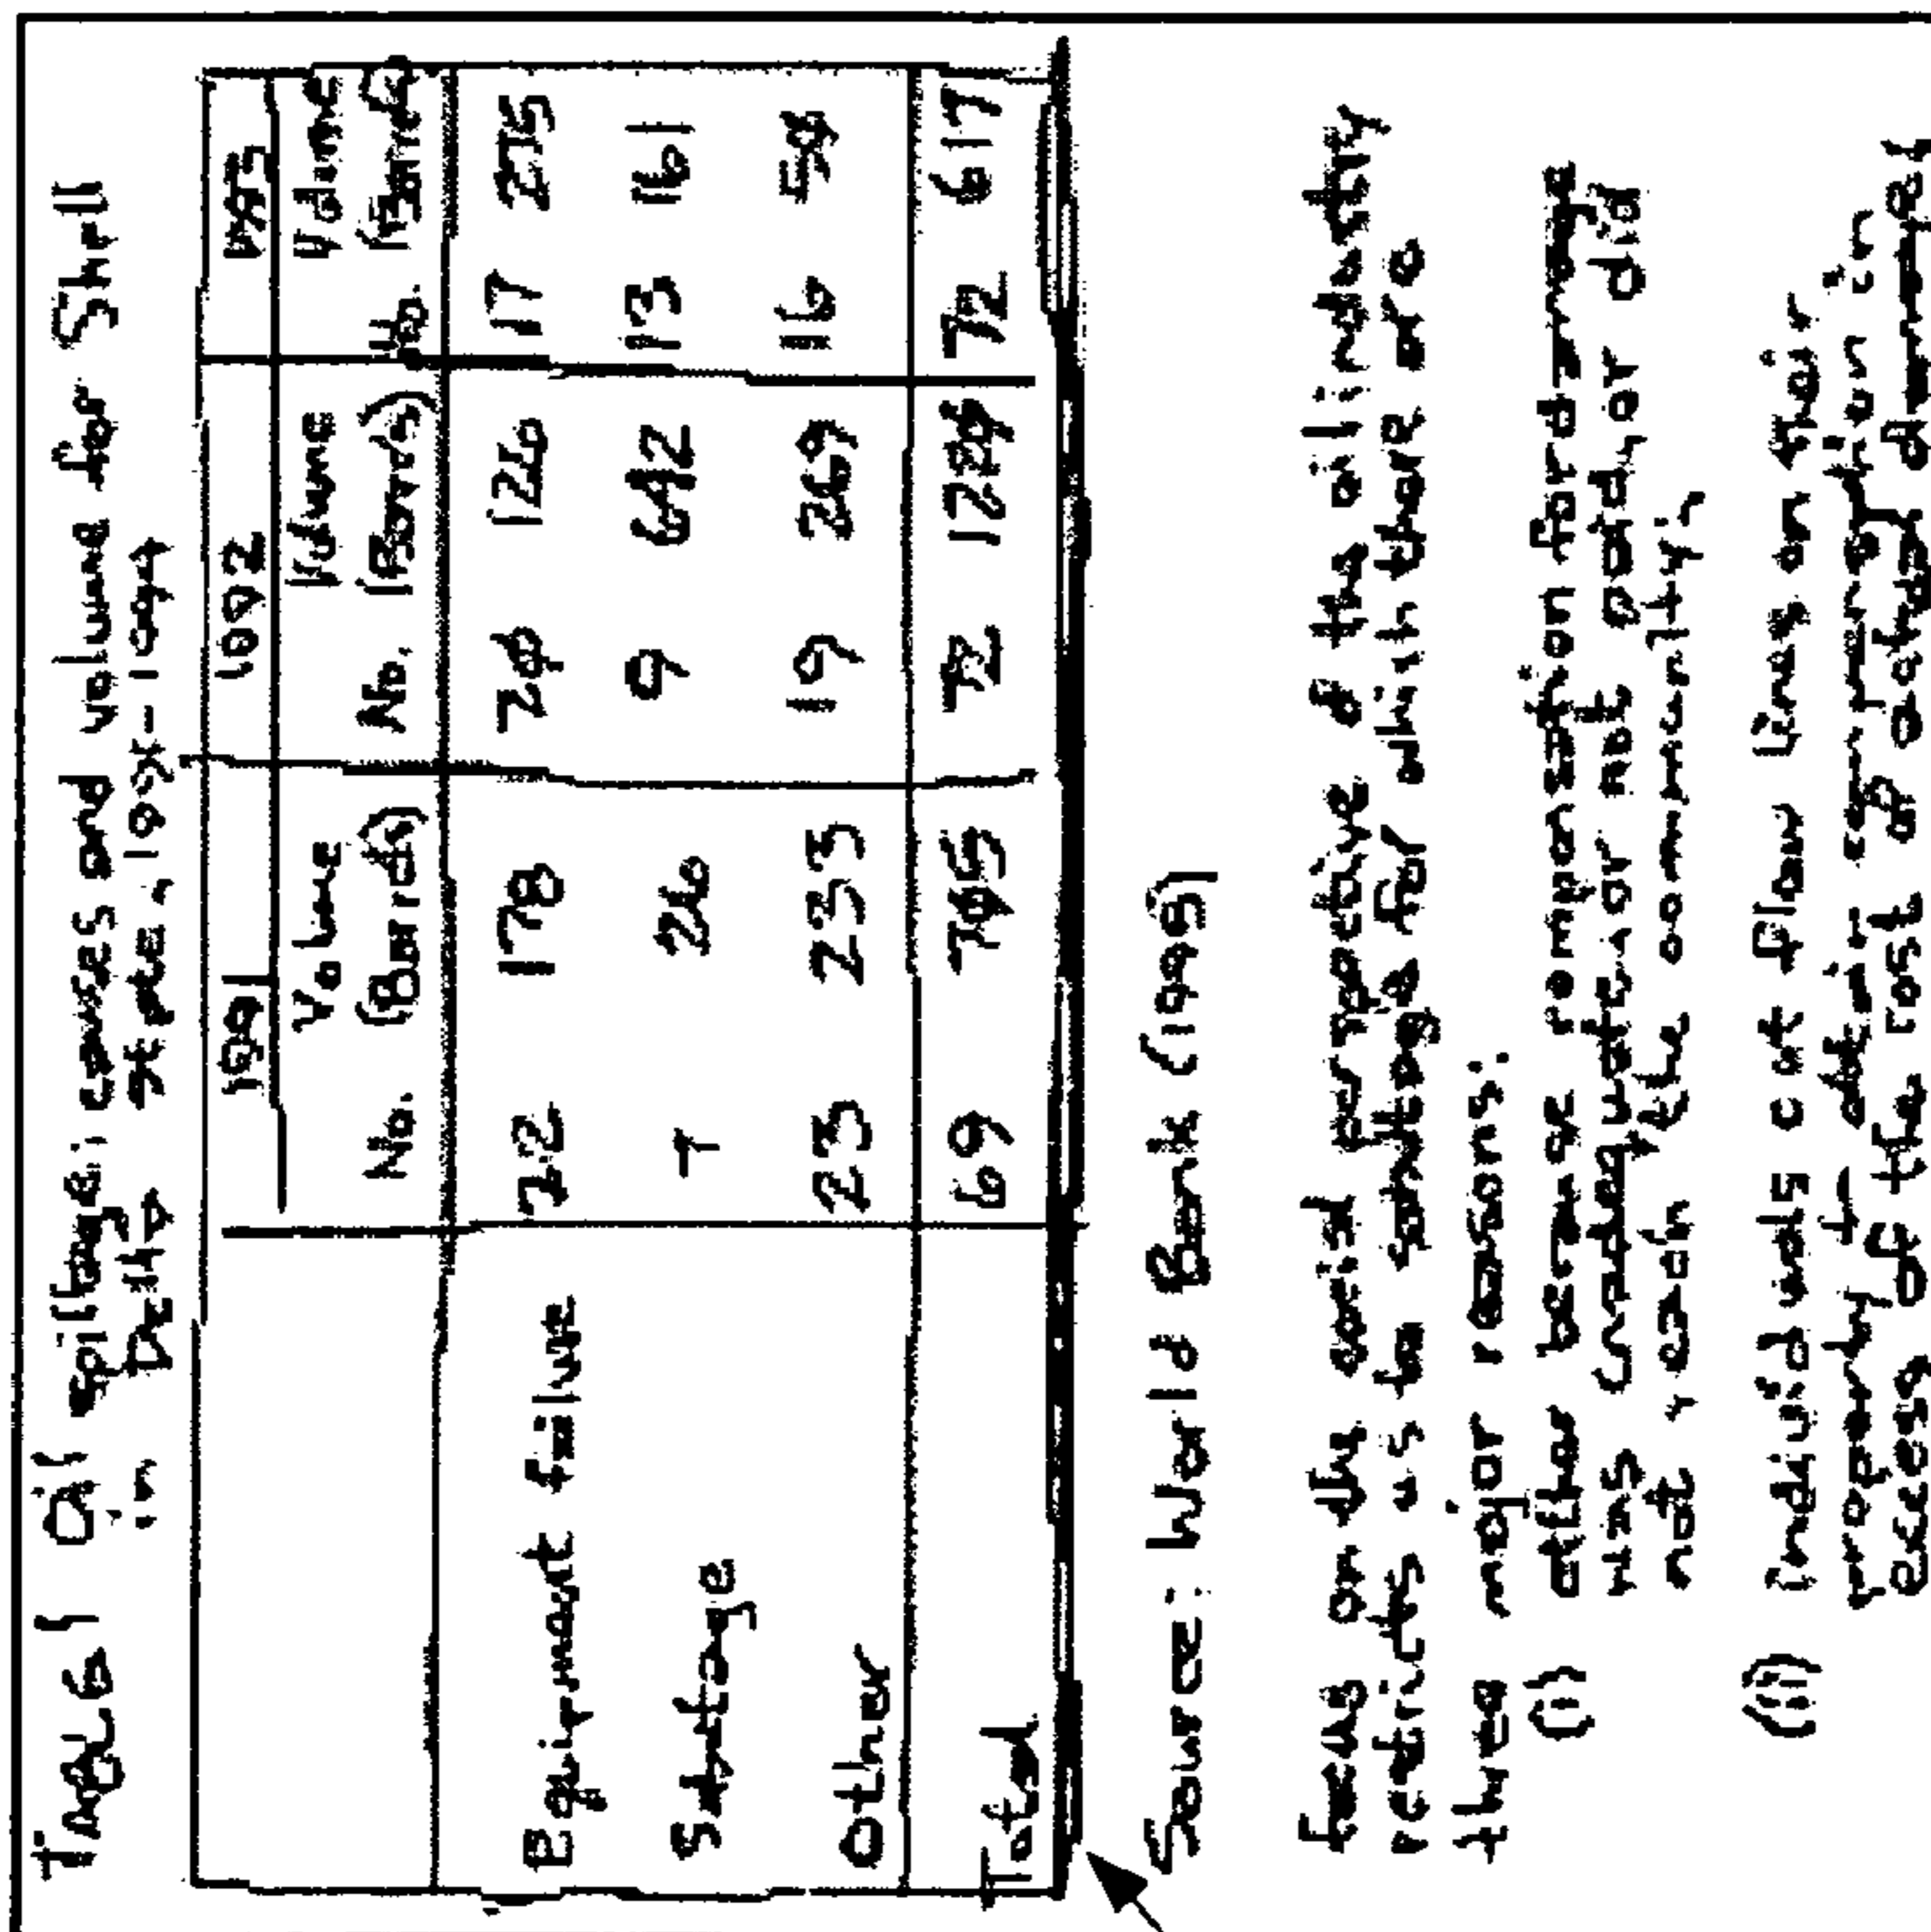 TABLE 1 Oil spillage: causes and volume for Shell
in Delta State,
1991 1992
No. Volume (Barrels) No. Volume (Barrels) No. Volume
Equipment failure 22 178 126 17 275
Sabotage 7 26 9 642 13 161
Other 23 233 19 269 16
Total 69 72 72 617
Source: World Bank (1998)
on the social perspective of the oil industry
restricts us to sabotage for which there are
three major reasons:
(i) either because compensation for damage
was inadequate, or not paid, or did
not reach the community;
(ii) individuals cut flow lines on their
property to obtain compensation in
excess of the cost of actual